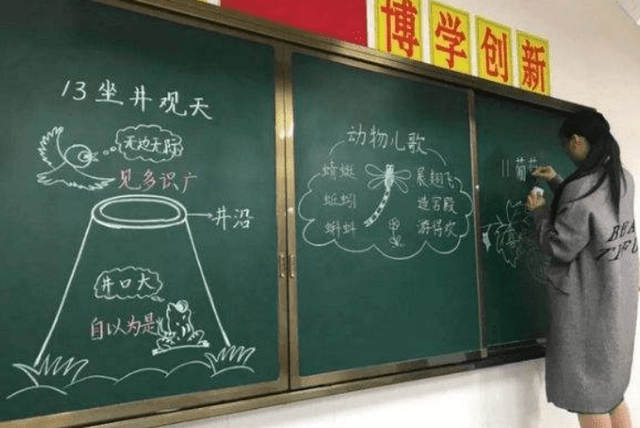 博学创新
13坐井观天
无边无际
见多识广
井沿
井口大
自以为是
动物儿歌
蜻蜓 展翅飞
蚯蚓 造宫殿
蝌蚪 游得欢
11葡萄
BEA